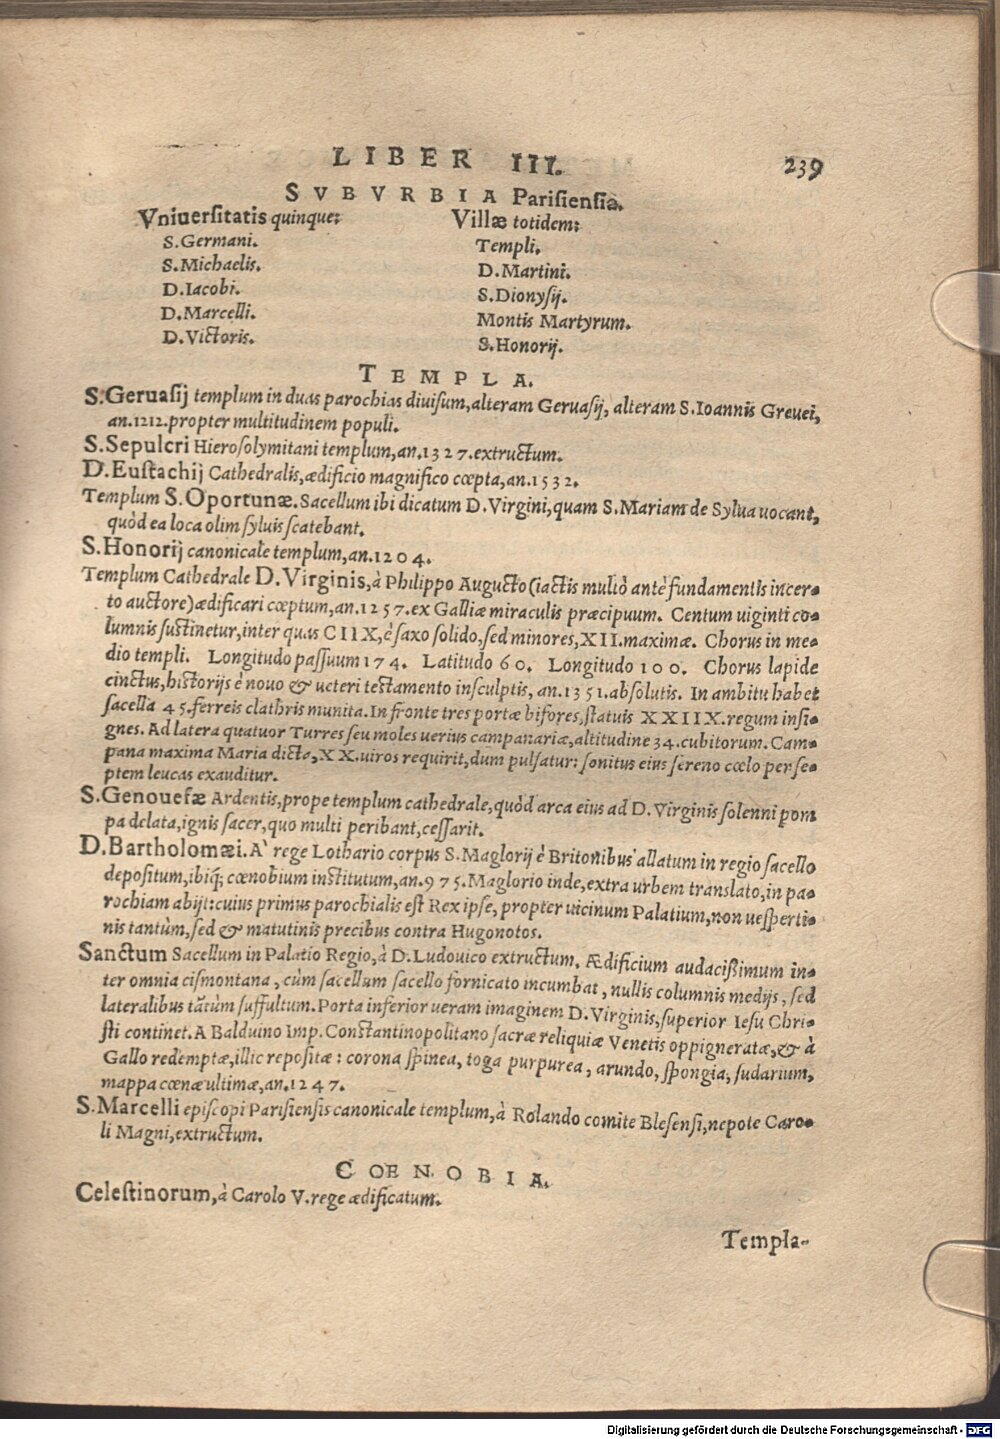 LIBER III. 239
SVBVRBIA Parisiensia.
Vniuersitatis quinque:
S.Germani.
S.Michaelis.
D.Iacobi.
D.Marcelli.
D.Victoris.
Villæ totidem:
Templi.
D.Martini.
S.Dionysij.
Montis Martyrum.
S.Honorij.
TEMPLA.
S.Geruasij templum in duas parochias diuisum, alteram Geruasij, alteram S.Ioannis Greuei,
an.1212.propter multitudinem populi.
S.Sepulcri Hierosolymitani templum,an.1327.extructum.
D.Eustachij Cathedralis,ædificio magnifico cœpta,an.1532.
Templum S.Oportunæ.Sacellum ibi dicatum D.Virgini,quam S.Mariam de Sylua uocant,
quòd ea loca olim syluis scatebant.
S.Honorij canonicale templum,an.1204.
Templum Cathedrale D.Virginis,à Philippo Augusto (iactis multò antè fundamentis incer-
to auctore) ædificari cœptum,an.1257.ex Galliæ miraculis præcipuum. Centum uiginti co-
lumnis sustinetur,inter quas CIIX,è saxo solido,sed minores,XII.maximæ. Chorus in me-
dio templi. Longitudo passuum 174. Latitudo 60. Longitudo 100. Chorus lapide
cinctus,historijs è nouo & ueteri testamento insculptis, an.1351.absolutis. In ambitu habet
sacella 45.ferreis clathris munita.In fronte tres portæ bifores,statuis XXIIX.regum insi-
gnes. Ad latera quatuor Turres seu moles uerius campanariæ,altitudine 34.cubitorum. Cam-
pana maxima Maria dicta,XX.uiros requirit,dum pulsatur: sonitus eius sereno cœlo per se-
ptem leucas exauditur.
S.Genouefæ Ardentis,prope templum cathedrale,quòd arca eius ad D.Virginis solenni pom
pa delata,ignis sacer,quo multi peribant,cessarit.
D.Bartholomæi.A' rege Lothario corpus S.Maglorij è Britonibus allatum in regio sacello
depositum,ibiq́; cœnobium institutum,an.975.Maglorio inde,extra urbem translato,in pa-
rochiam abijt: cuius primus parochialis est Rex ipse, propter uicinum Palatium,non uesperti-
nis tantùm,sed & matutinis precibus contra Hugonotos.
Sanctum Sacellum in Palatio Regio,à D.Ludouico extructum. Ædificium audacißimum in-
ter omnia cismontana, cùm sacellum sacello fornicato incumbat, nullis columnis medijs, sed
lateralibus tãtùm suffultum.Porta inferior ueram imaginem D.Virginis,superior Iesu Chri-
sti continet.A Balduino Imp.Constantinopolitano sacræ reliquiæ Venetis oppigneratæ,& à
Gallo redemptæ,illic repositæ: corona spinea, toga purpurea, arundo, spongia, sudarium,
mappa cœnæ ultimæ,an.1247.
S.Marcelli episcopi Parisiensis canonicale templum,à Rolando comite Blesensi,nepote Caro-
li Magni,extructum.
COENOBIA.
Celestinorum,à Carolo V.rege ædificatum.
Templa-
Digitalisierung gefördert durch die Deutsche Forschungsgemeinschaft - DFG